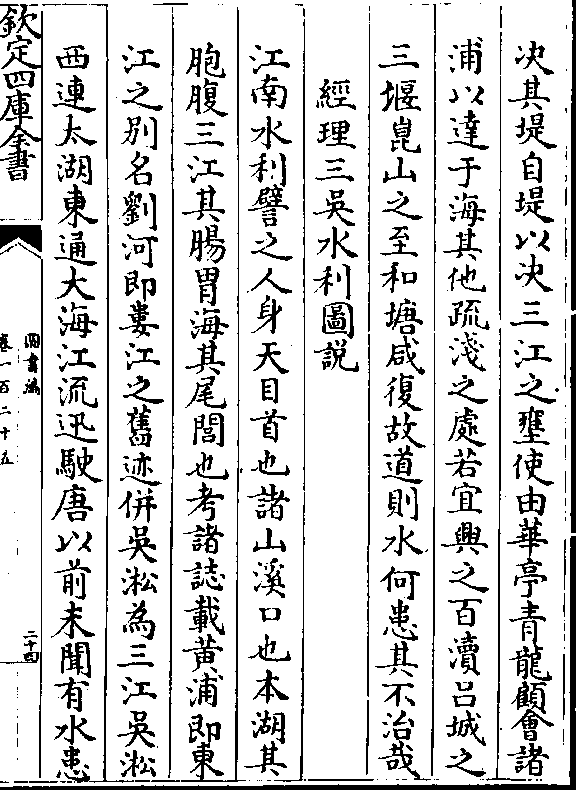 决其堤自堤以决三江之壅使由華亭青龍顧會諸
浦以達于海其他疏淺之處若宜興之百瀆吕城之
三堰崑山之至和塘咸復故道則水何患其不治哉
經理三吴水利圖説
江南水利譬之人身天目首也諸山溪口也本湖其
胞腹三江其腸胃海其尾閭也考諸誌載黄浦即東
江之别名劉河即婁江之舊迹併吴淞為三江吴淞
西連太湖東通大海江流迅駛唐以前未聞有水患
欽定四庫全書
圖書編
卷一百二十五
二十四